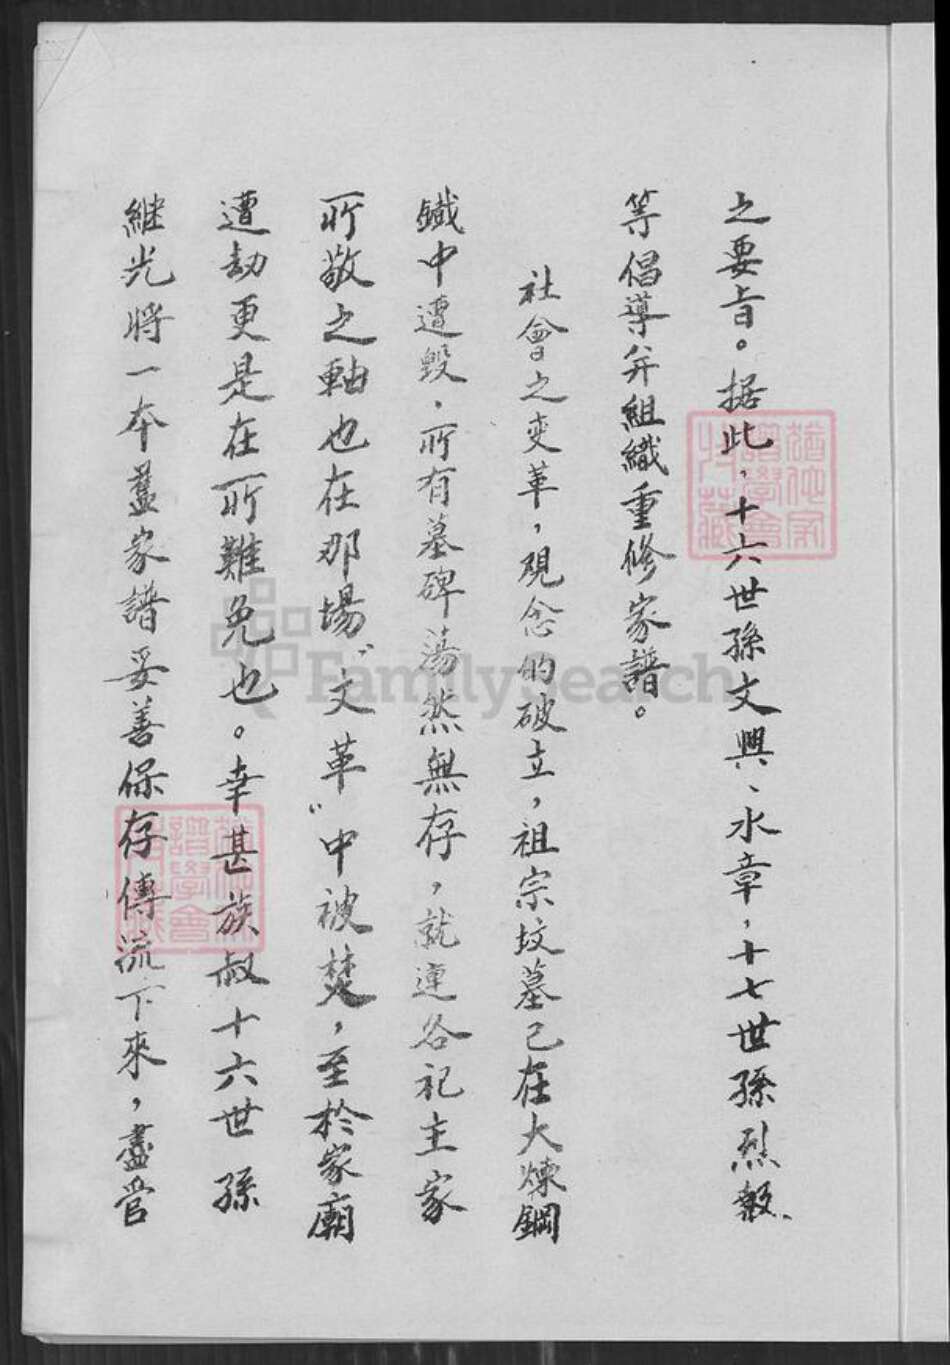 之要旨。据此，十六世孫文興、永章，十七世孫烈毅、
等倡導并組織重修家譜。
社會之变革，現念的破立，祖宗坟墓已在大煉鋼
鐵中遭毀，所有墓碑蕩然無存，就連各祀主家
所敬之軸也在那場“文革”中被焚，至於家廟
遭劫更是在所難免也。幸甚族叔十六世孫
継光将一本舊家譜妥善保存傳流下來，盡管
FamilySearch
譜學會